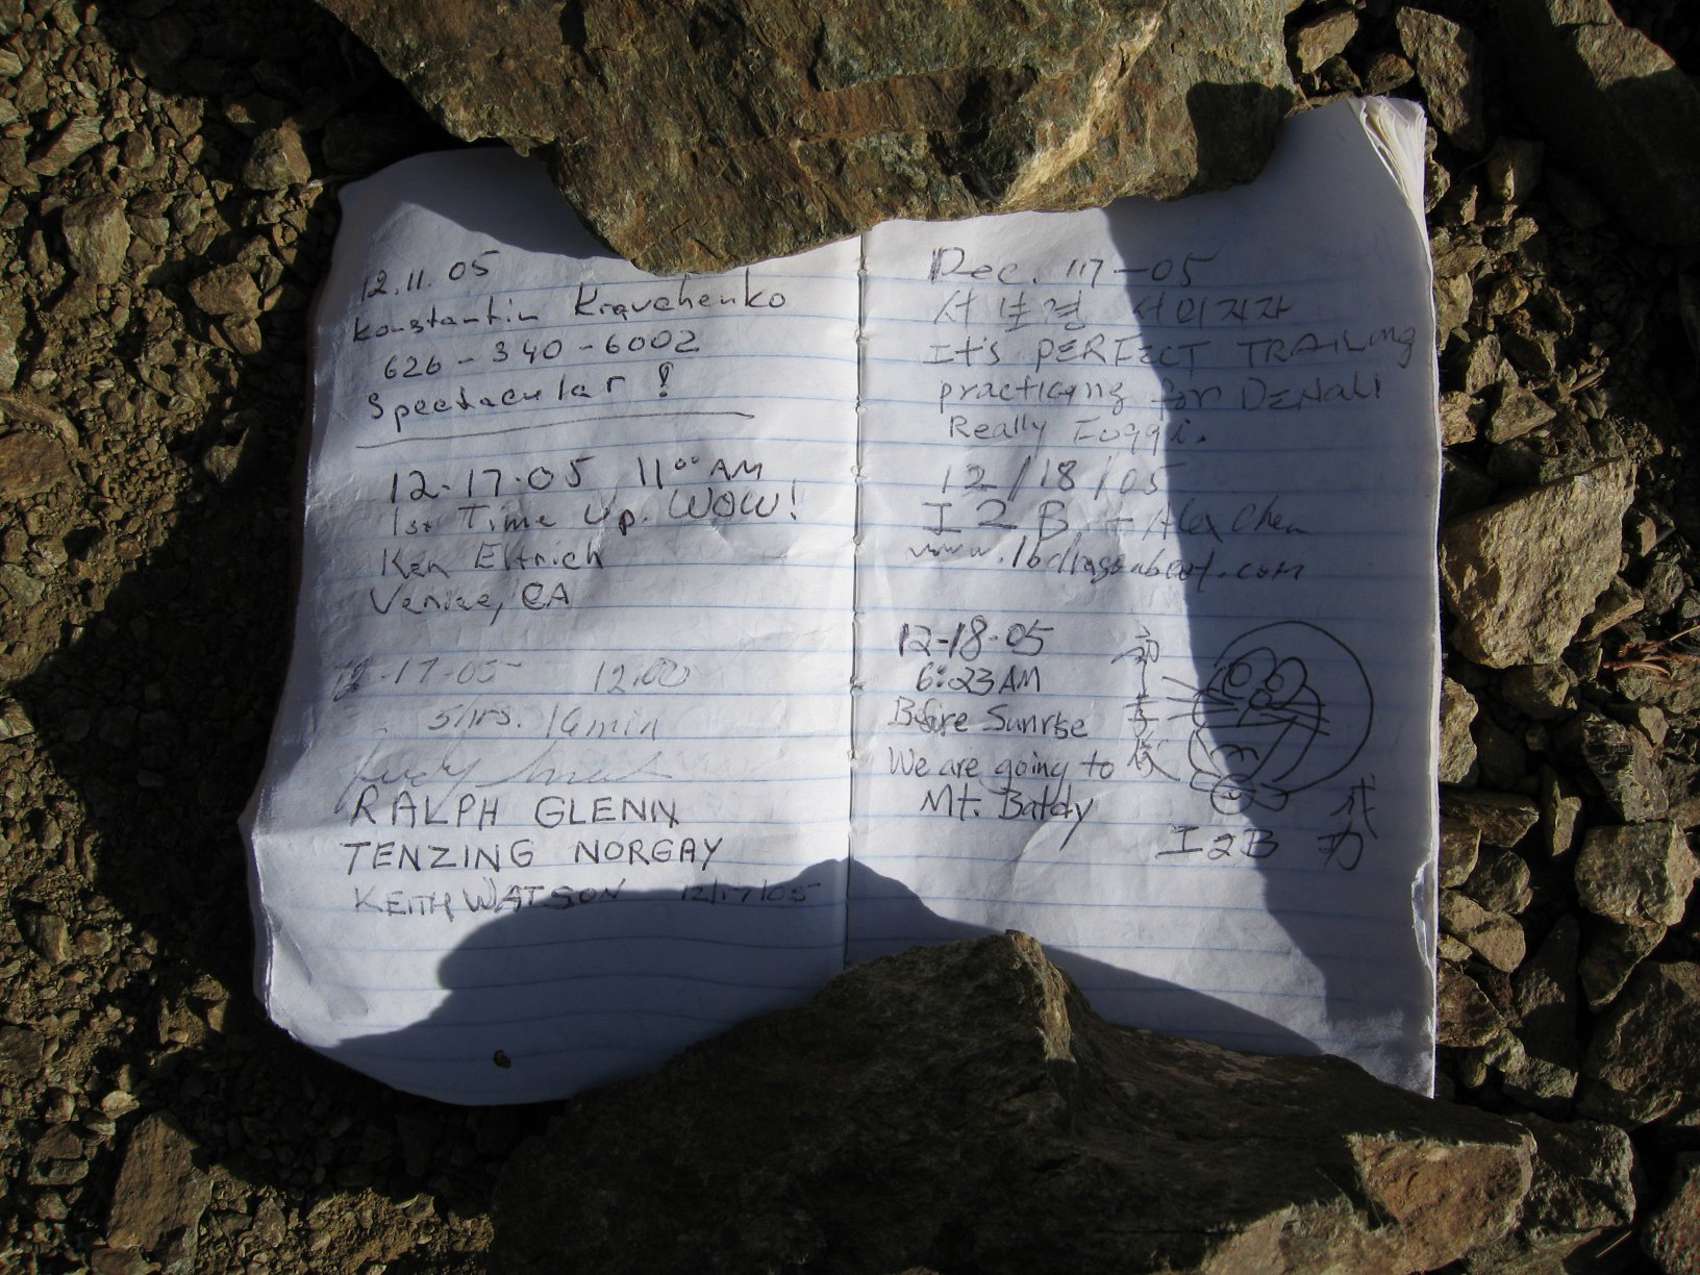 12.11.05
Konstantin Kravchenko
626-340-6002
Spectacular!
12-17-05 11⁰⁰ AM
1st Time Up. WOW!
Ken Eltrich
Venice, CA
12-17-05 12:00
5hrs. 16min
RALPH GLENN
TENZING NORGAY
KEITH WATSON 12/17/05
Dec. 17-05
It's PERFECT TRAILing
practicing for DENALI
Really Foggi.
12/18/05
I2B + Alex Chen
12-18-05
6:23AM
Before Sunrise
We are going to
Mt. Baldy
I2B
成
功